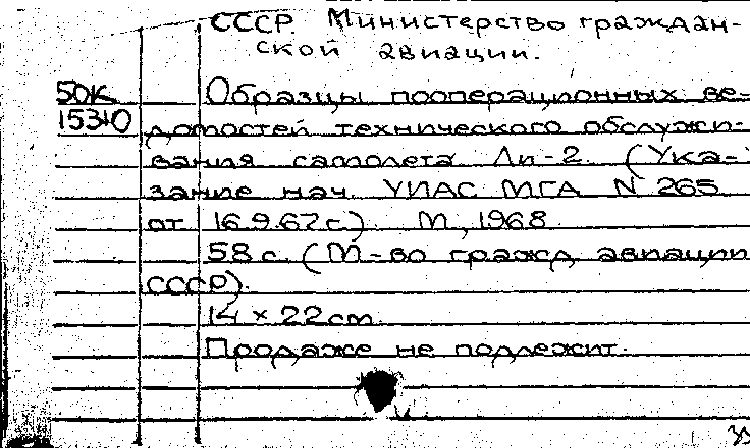 СССР. Министерство граждан-
ской авиации.
50К Образцы пооперационных ве-
15310 домостей технического обслужи-
вания самолета Ли-2. (Ука-
зание нач. УИАС МГА N 265
от 16.9.67г.). М., 1968.
58 с. (М-во гражд. авиации
СССР).
14 × 22 cm.
Продаже не подлежит.